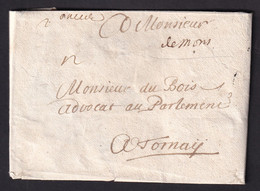 A Monsieur
de mons
Monsieur du Bois
advocat au Parlement
A Tornaÿ